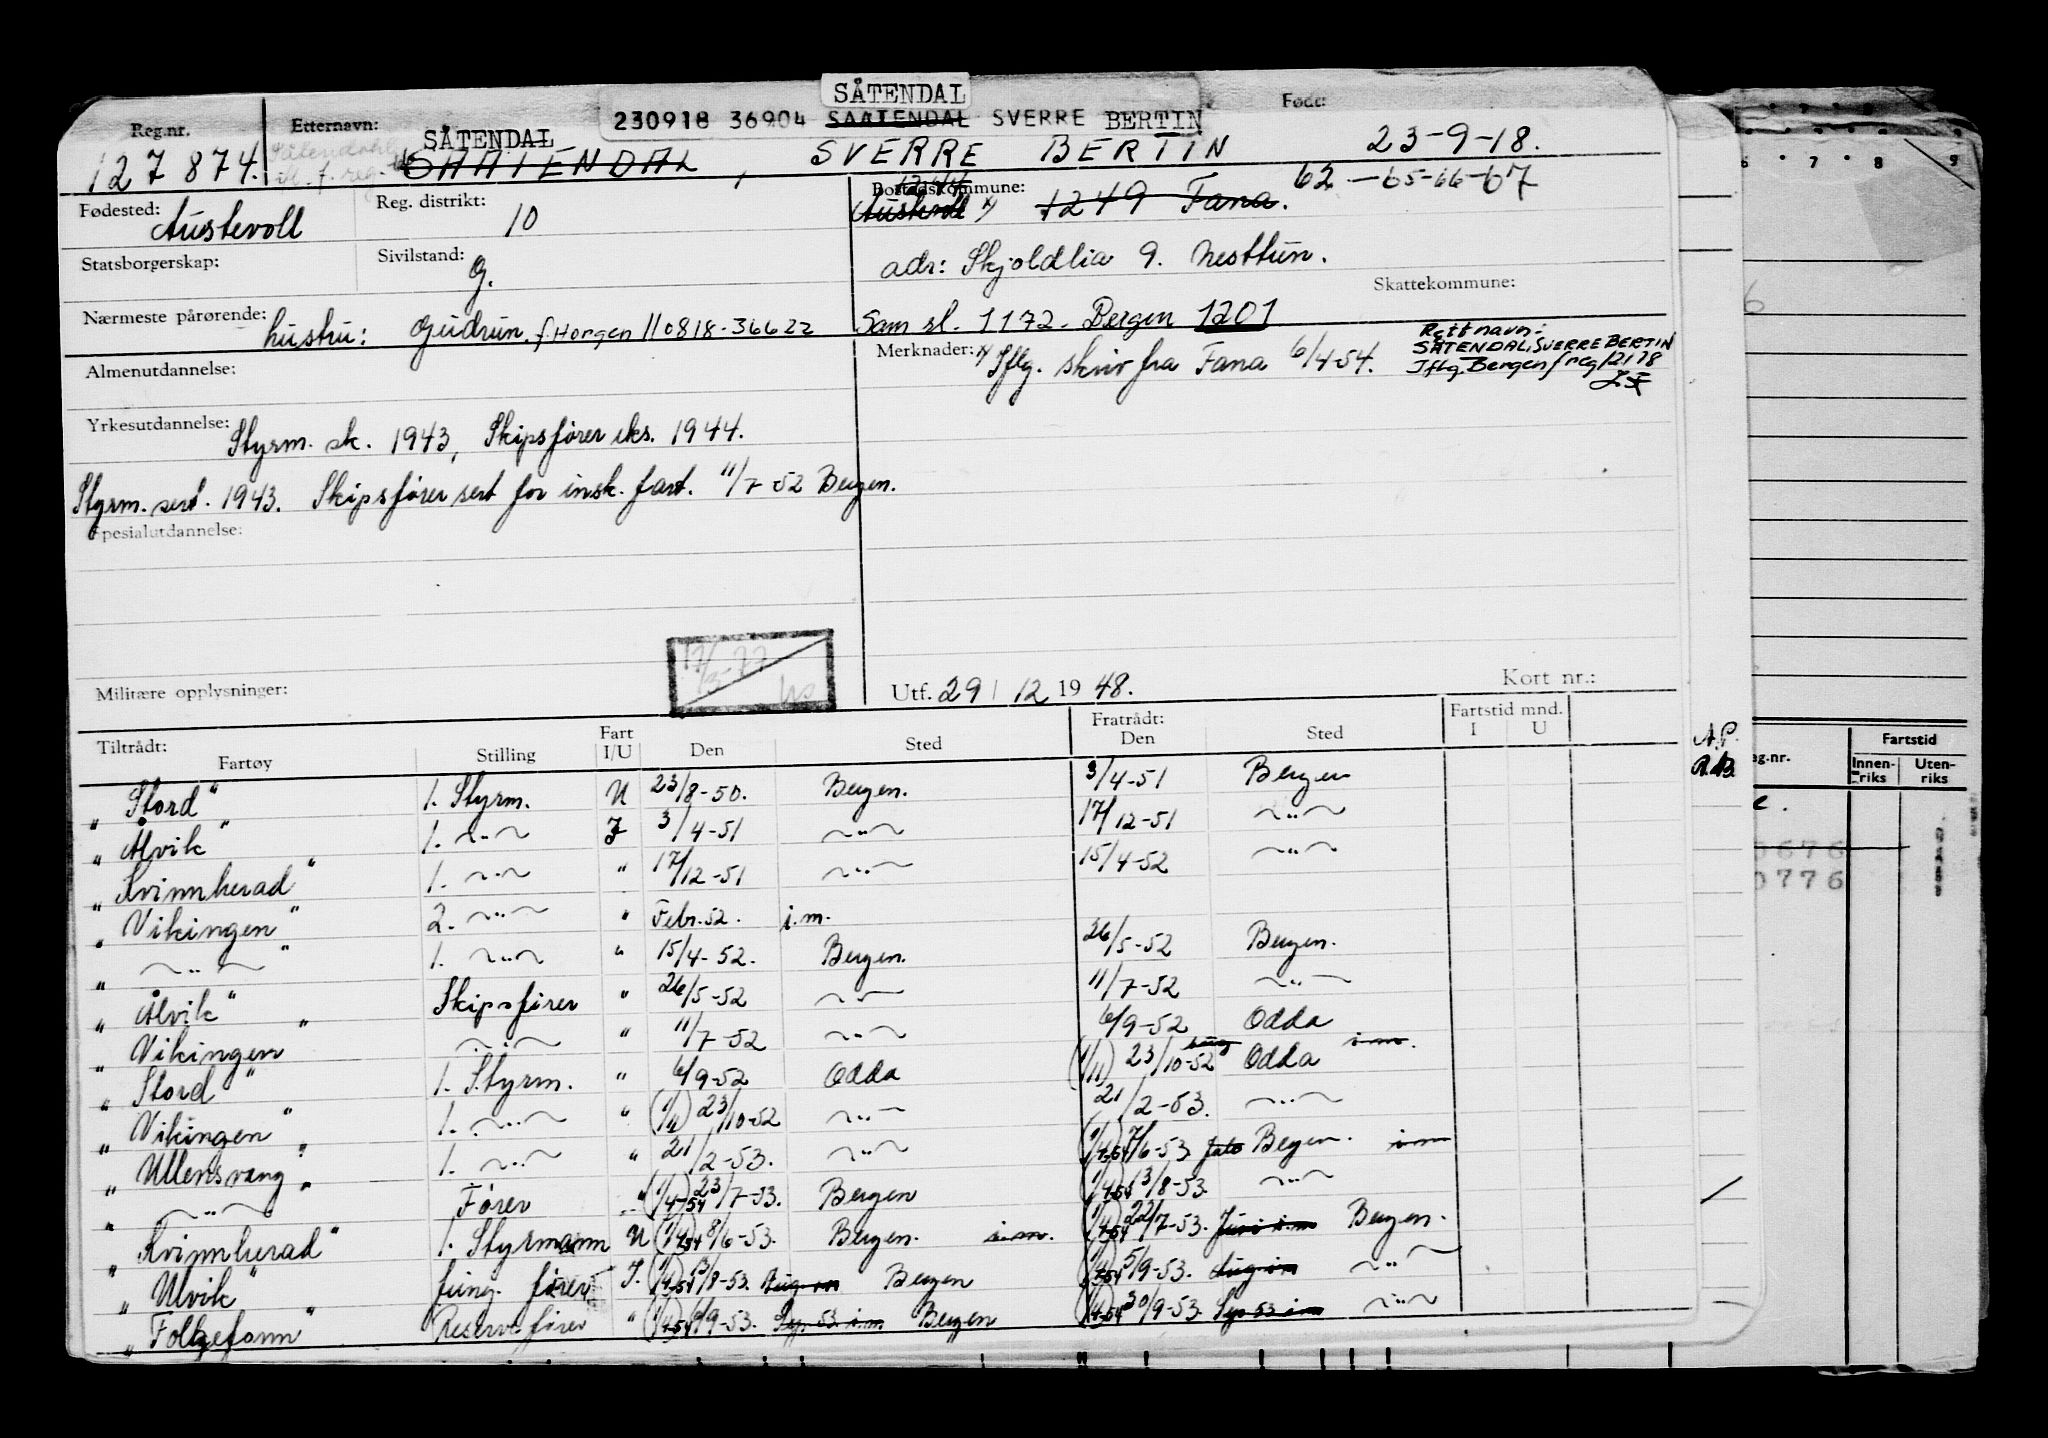 SÅTENDAL
230918 36904 SAATENDAL SVERRE BERTIN
Reg.nr. Etternavn: Født:
127 874. SÅTENDAL SAATENDAL, SVERRE BERTIN 23-9-18.
Fødested: Austevoll Reg. distrikt: 10
Bostedskommune: 1244 Austevoll x) 1249 Fana. 62-65-66-67
Statsborgerskap: Sivilstand: g.
adr: Skjoldlia 9. Nesttun.
Skattekommune:
Nærmeste pårørende: hustru: Gudrun f. Horgen 110818-36622
Sam sl. 1172. Bergen 1201
Almenutdannelse:
Merknader: x) Iflg. skriv fra Fana 6/4-54.
Rett navn:
SÅTENDAL, SVERRE BERTIN
Iflg. Bergen f reg 12178
Yrkesutdannelse: Styrm. sk. 1943, Skipsfører eks. 1944.
Styrm. sert. 1943. Skipsfører sert for insk. fart. 11/7-52 Bergen.
Spesialutdannelse:
17/3-77
Militære opplysninger:
Utf. 29/12 1948. Kort nr.:
Tiltrådt: Fartøy Stilling Fart I/U Den Sted Fratrådt: Den Sted Fartstid mnd. I U
"Stord" 1. Styrm. U 23/8-50. Bergen. 3/4-51 Bergen
"Ålvik" 1. -"- I 3/4-51 -"- 17/12-51 -"-
"Kvinnherad" 1. -"- " 17/12-51 -"- 15/4-52 -"-
"Vikingen" 2. -"- " Febr. 52. i.m.
" -"- " 1. -"- " 15/4-52. Bergen. 26/5-52 Bergen.
"Ålvik" Skipsfører " 26/5-52 -"- 11/7-52 -"-
"Vikingen" -"- " 11/7-52 -"- 6/9-52 Odda
"Stord" 1. Styrm. " 6/9-52 Odda (1/11) 23/10-52 Odda i.m.
"Vikingen" 1. -"- " (1/11) 23/10-52 -"- 21/2-53. -"-
"Ullensvang" 1. -"- " 21/2-53. -"- (1/4-54) 7/6-53 Bergen. i.m
" -"- " Fører " (1/4-54) 23/7-53. Bergen (1/4-54) 13/8-53. -"-
"Kvinnherad" 1. Styrmann U (1/4-54) 8/6-53. Bergen. i.m. (1/4-54) 22/7-53. Juni i.m Bergen.
"Ulvik" fung. fører I. (1/4-54) 13/8-53. Aug im Bergen (1/4-54) 5/9-53. Aug im -"-
"Folgefonn" Reservefører " (1/4-54) 6/9-53. Sep 53 i.m. Bergen (1/4-54) 30/9-53. Sep 53 i.m -"-
A.P.
R.B.
6 7 8 9
6
ag.nr. Fartstid
Innen-riks Uten-riks
0676
0776